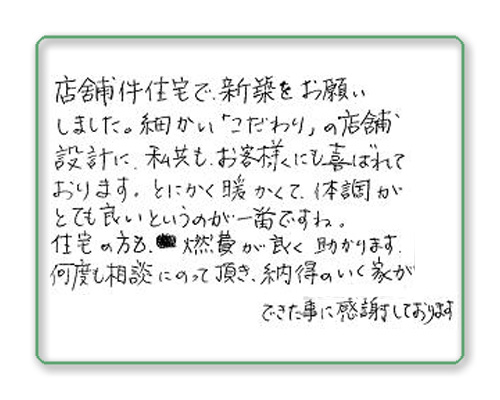 店舗件住宅で、新築をお願い
しました。細かい「こだわり」の店舗
設計に、私共も、お客様にも喜ばれて
おります。とにかく暖かくて、体調が
とても良いというのが一番ですね。
住宅の方も、燃費が良く助かります。
何度も相談にのって頂き、納得のいく家が
できた事に感謝しております